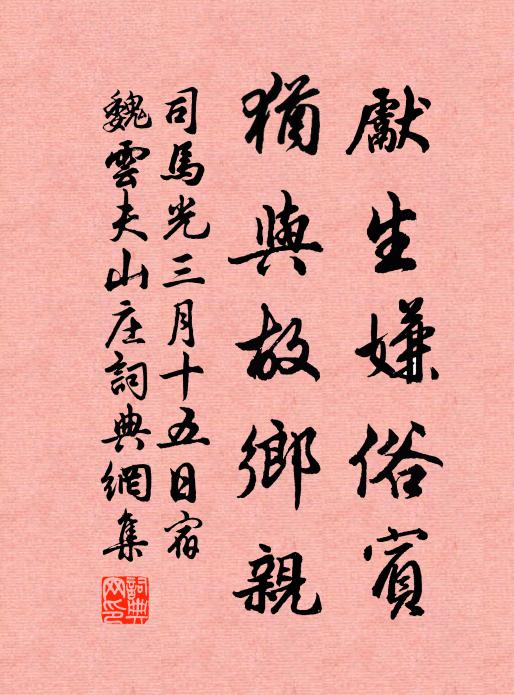 獻生嫌俗賓
猶與故鄉親
司馬光三月十五日宿
魏雲夫山庄詞典網集
詞典網印